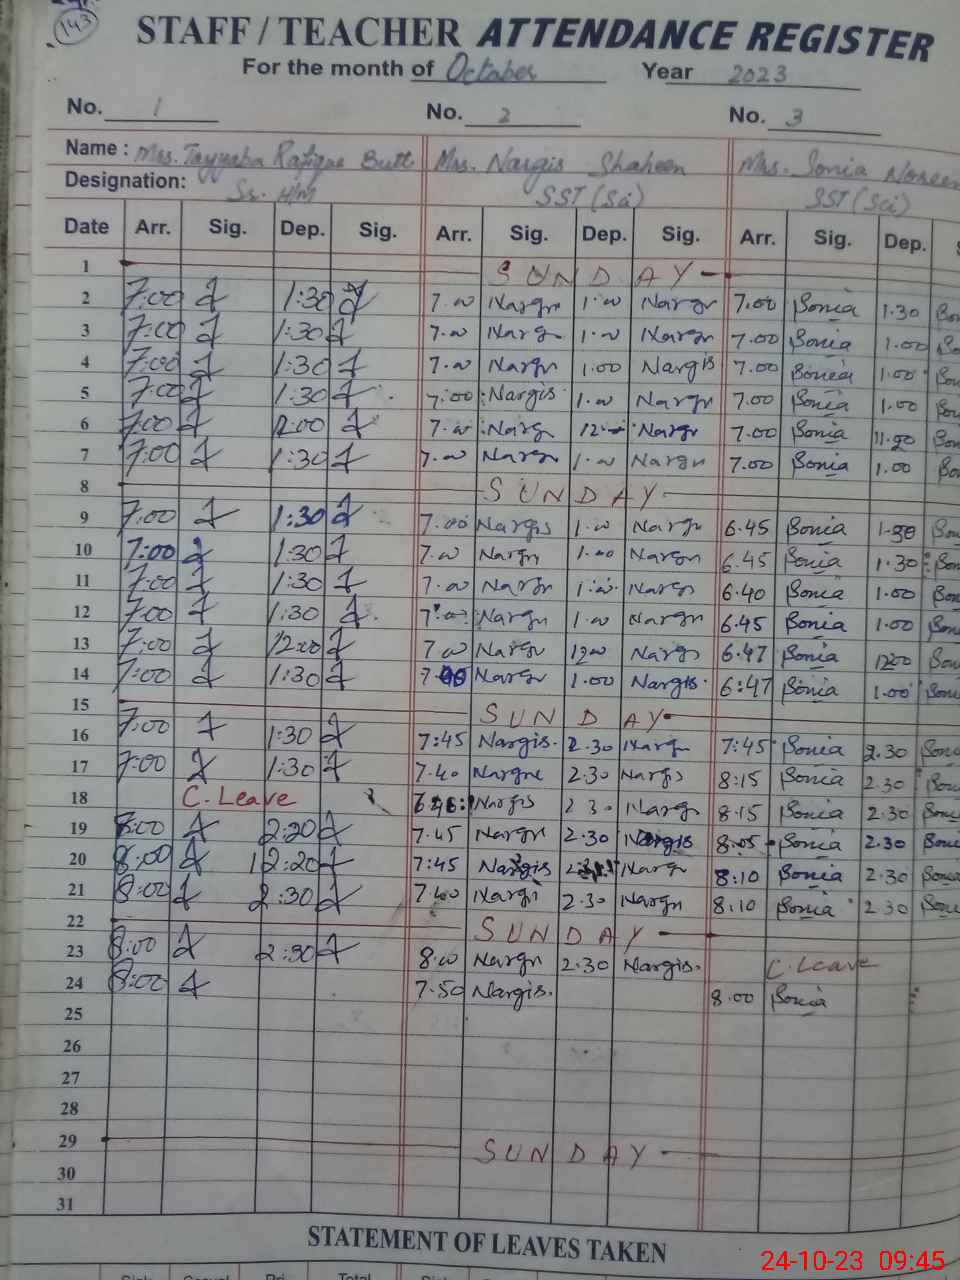 143
STAFF / TEACHER ATTENDANCE REGISTER
For the month of October Year 2023
No. 1 No. 2 No. 3
Name : Mrs. Tayyaba Rafique Butt Mrs. Nargis Shaheen Mrs. Sonia Noreen
Designation: Sr. H/M SST (Sci) SST (Sci)
Date Arr. Sig. Dep. Sig. Arr. Sig. Dep. Sig. Arr. Sig. Dep.
1 SUNDAY
2 7:00 1:30 7.00 Nargis 1.00 Nargis 7.00 Sonia 1.30
3 7:00 1:30 7.00 Nargis 1.00 Nargis 7.00 Sonia 1.00
4 7:00 1:30 7.00 Nargis 1.00 Nargis 7.00 Sonia 1.00
5 7:00 1:30 7:00 Nargis 1.00 Nargis 7.00 Sonia 1.00
6 7:00 12:00 7.00 Nargis 12 Nargis 7.00 Sonia
7 7:00 1:30 7.00 Nargis 1.00 Nargis 7.00 Sonia 1.00
8 SUNDAY
9 7:00 1:30 7.00 Nargis 1.00 Nargis 6.45 Sonia
10 7:00 1:30 7.00 Nargis 1.00 Nargis 6.45 Sonia 1.30
11 7:00 1:30 7.00 Nargis 1.00 Nargis 6.40 Sonia 1.00
12 7:00 1:30 7.00 Nargis 1.00 Nargis 6.45 Sonia 1.00
13 7:00 12:00 7.00 Nargis 1200 Nargis 6.47 Sonia 1200
14 7:00 1:30 Nargis 1.00 Nargis 6:47 Sonia 1.00
15 SUNDAY
16 7:00 1:30 7:45 Nargis 2.30 Nargis 7:45 Sonia 2.30
17 7:00 1:30 7.40 Nargis 2.30 Nargis 8:15 Sonia 2.30
18 C. Leave Nargis 2 30 Nargis 8.15 Sonia 2.30
19 8:00 2:30 7.45 Nargis 2.30 Nargis 8.05 Sonia 2.30
20 8:00 12:20 7:45 Nargis Nargis 8:10 Sonia 2.30
21 8:00 2:30 7.40 Nargis 2.30 Nargis 8:10 Sonia 2.30
22 SUNDAY
23 8:00 2:30 8.00 Nargis 2.30 Nargis. C. Leave
24 8:00 7.50 Nargis. 8.00 Sonia
25
26
27
28
29 SUNDAY
30
31
STATEMENT OF LEAVES TAKEN
24-10-23 09:45